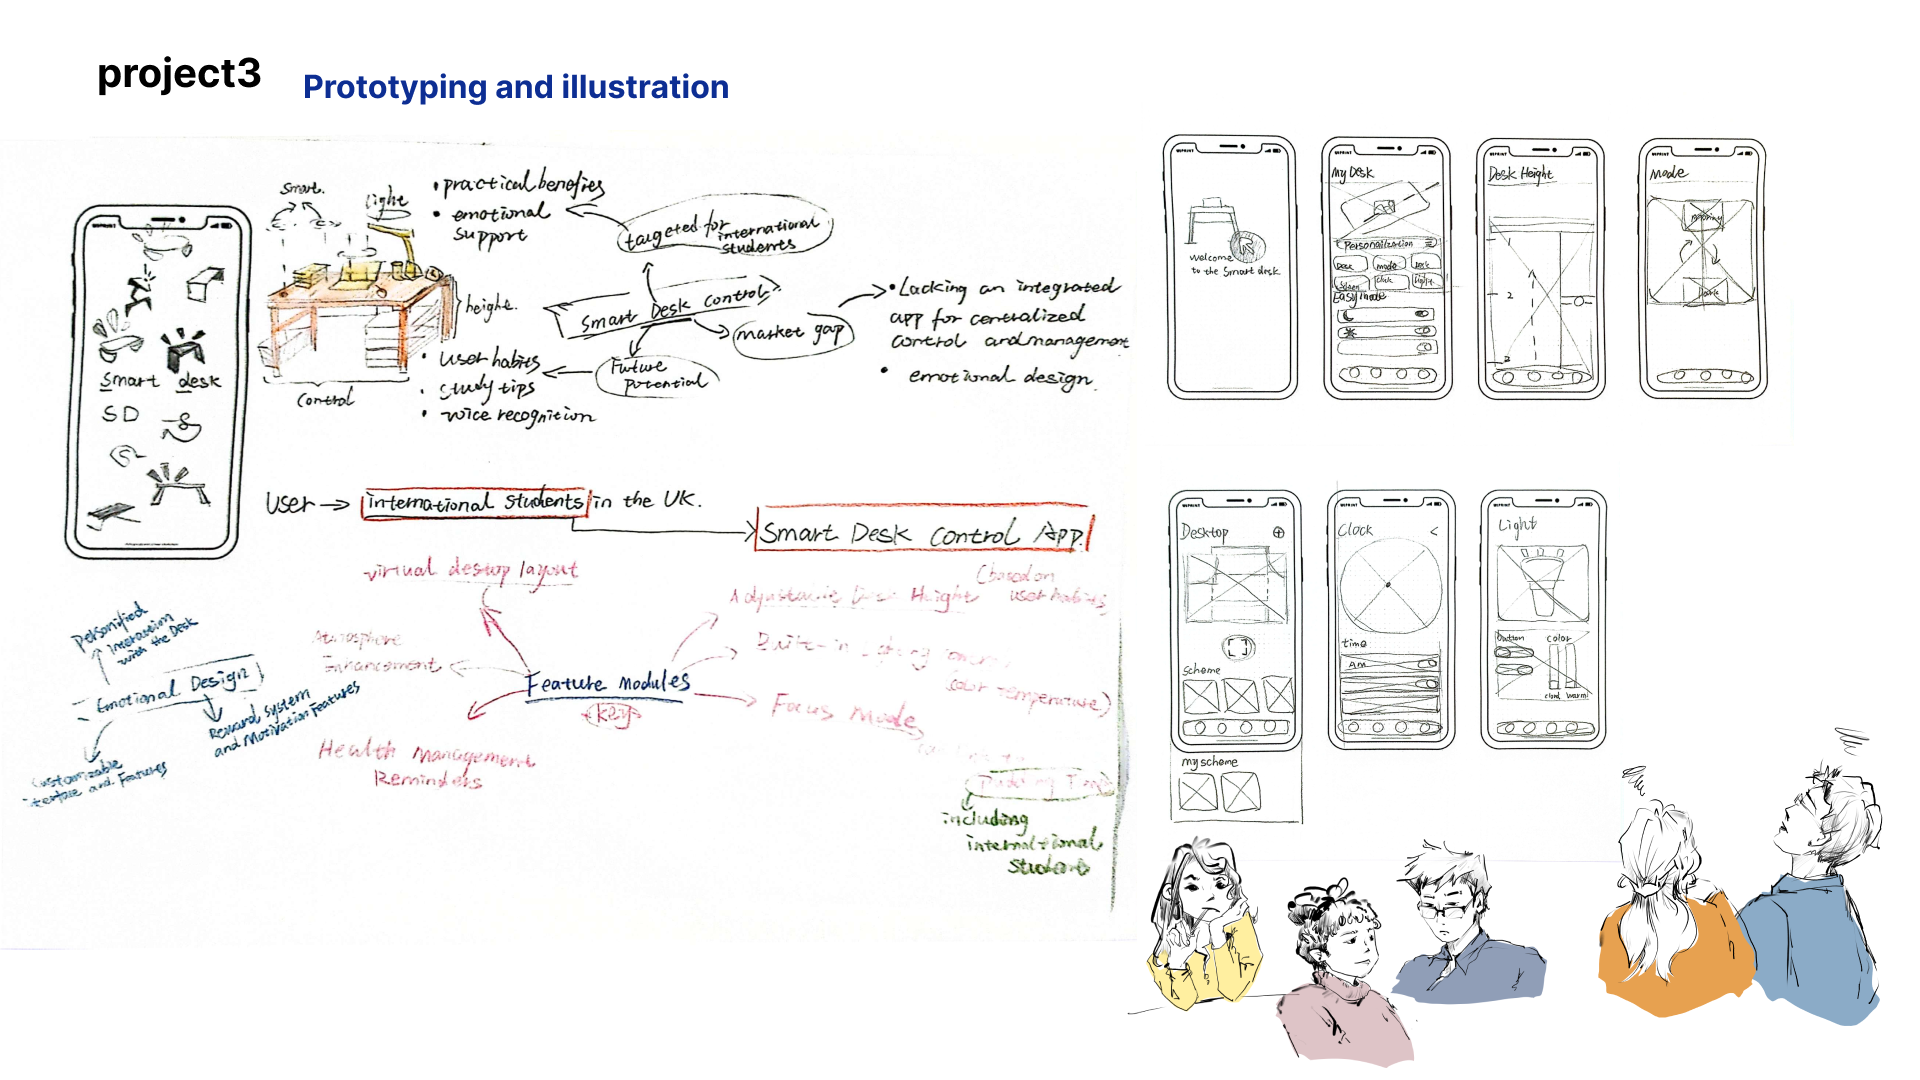 project3
Prototyping and illustration
smart.
Light
• practical benefies
• emotional
support
targeted for
international
students
height.
Smart Desk Control
market gap
• Lacking an integrated
app for centralized
control and management
• emotional design.
Future
potential
• user habits
• study tips
• voice recognition
Control
Smart desk
SD
User → international students in the UK.
Smart Desk Control App.
(based on
user habits,
virtual destop layout
Height
Atmosphere
Enhancement
Built-in
color temperature)
Feature Modules
(key)
Focus Mode
Health Management
Reminders
including
international
Students
Personified
interaction
with the Desk
Emotional Design
Reward system
and Motivation Features
Customizable
interface and Features
welcome
to the smart desk
My Desk
Personalization
Desk
mode
Desk
Screen
Clock
Light
Easy mode
Desk Height
2
Mode
Desktop
scheme
my scheme
Clock <
time
AM
Light
button
color
warm